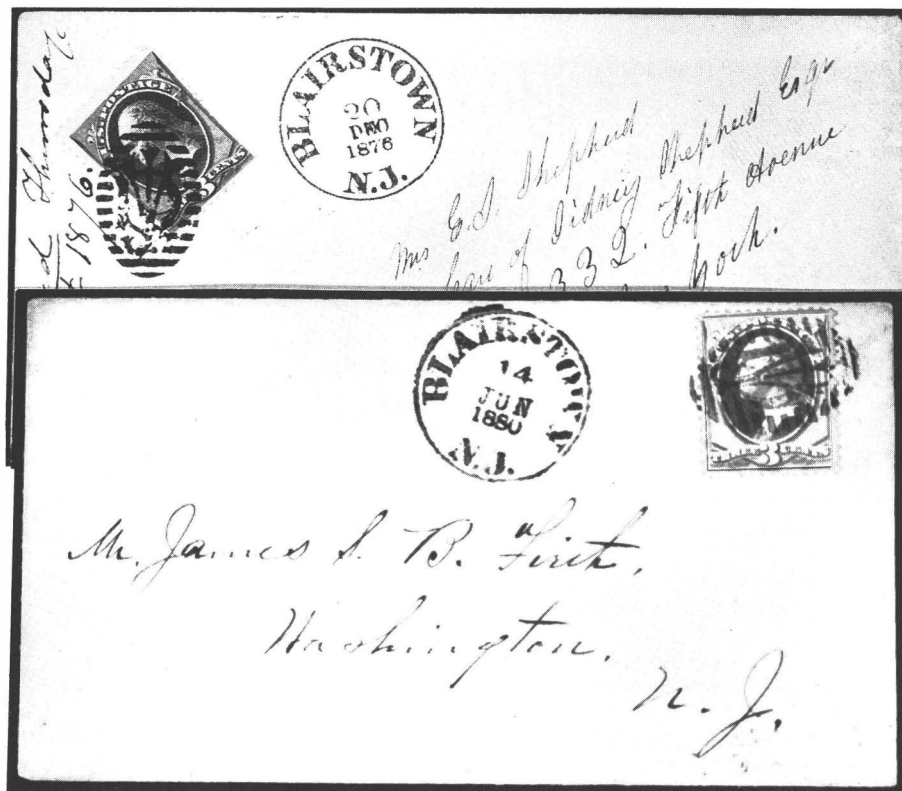 Thursday
1876.
U.S. POSTAGE
3 CENTS
BLAIRSTOWN
20
DEC
1876
N.J.
Mrs E. S. Shepherd
Care of Sidney Shepherd Esqr
332. Fifth Avenue
York.
BLAIRSTOWN
14
JUN
1880
N.J.
3
Mr. James S. B. Firth,
Washington,
N. J.